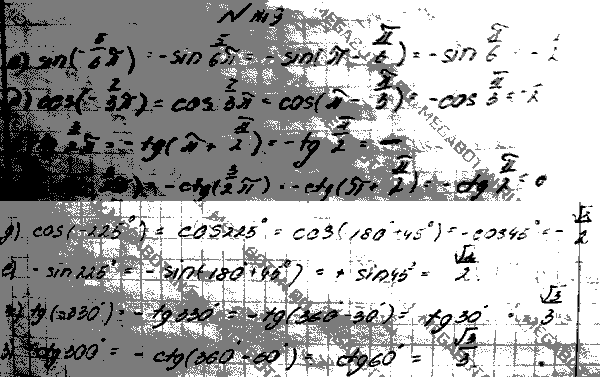 а) sin(-5/6 π) = -sin 5/6 π = -sin(π - π/6) = -sin π/6 = -1/2
б) cos(-2/3 π) = cos 2/3 π = cos(π - π/3) = -cos π/3 = -1/2
3/2 π = -tg(π + π/2) = -tg π/2 = —
= -ctg(3/2 π) = -ctg(π + π/2) = -ctg π/2 = 0
д) cos(-225°) = cos225° = cos(180°+45°) = -cos45° = -√2/2
е) -sin225° = -sin(180°+45°) = + sin45° = √2/2
tg(-330°) = -tg330° = -tg(360°-30°) = tg30° = √3/3
300° = -ctg(360°-60°) = ctg60° = √3/3